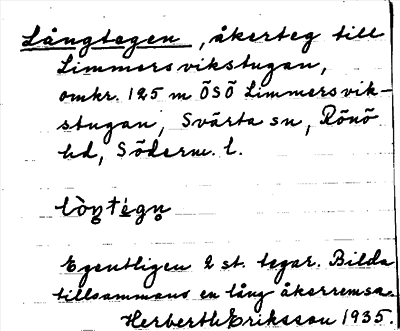 Långtegen, åkerteg till
Limmersvikstugan,
omkr. 125 m ÖSÖ Limmersvik-
stugan, Svärta sn, Rönö
hd, Söderm. l.
Egentligen 2 st. tegar. Bilda
tillsammans en lång åkerremsa.
Herberth Eriksson 1935.